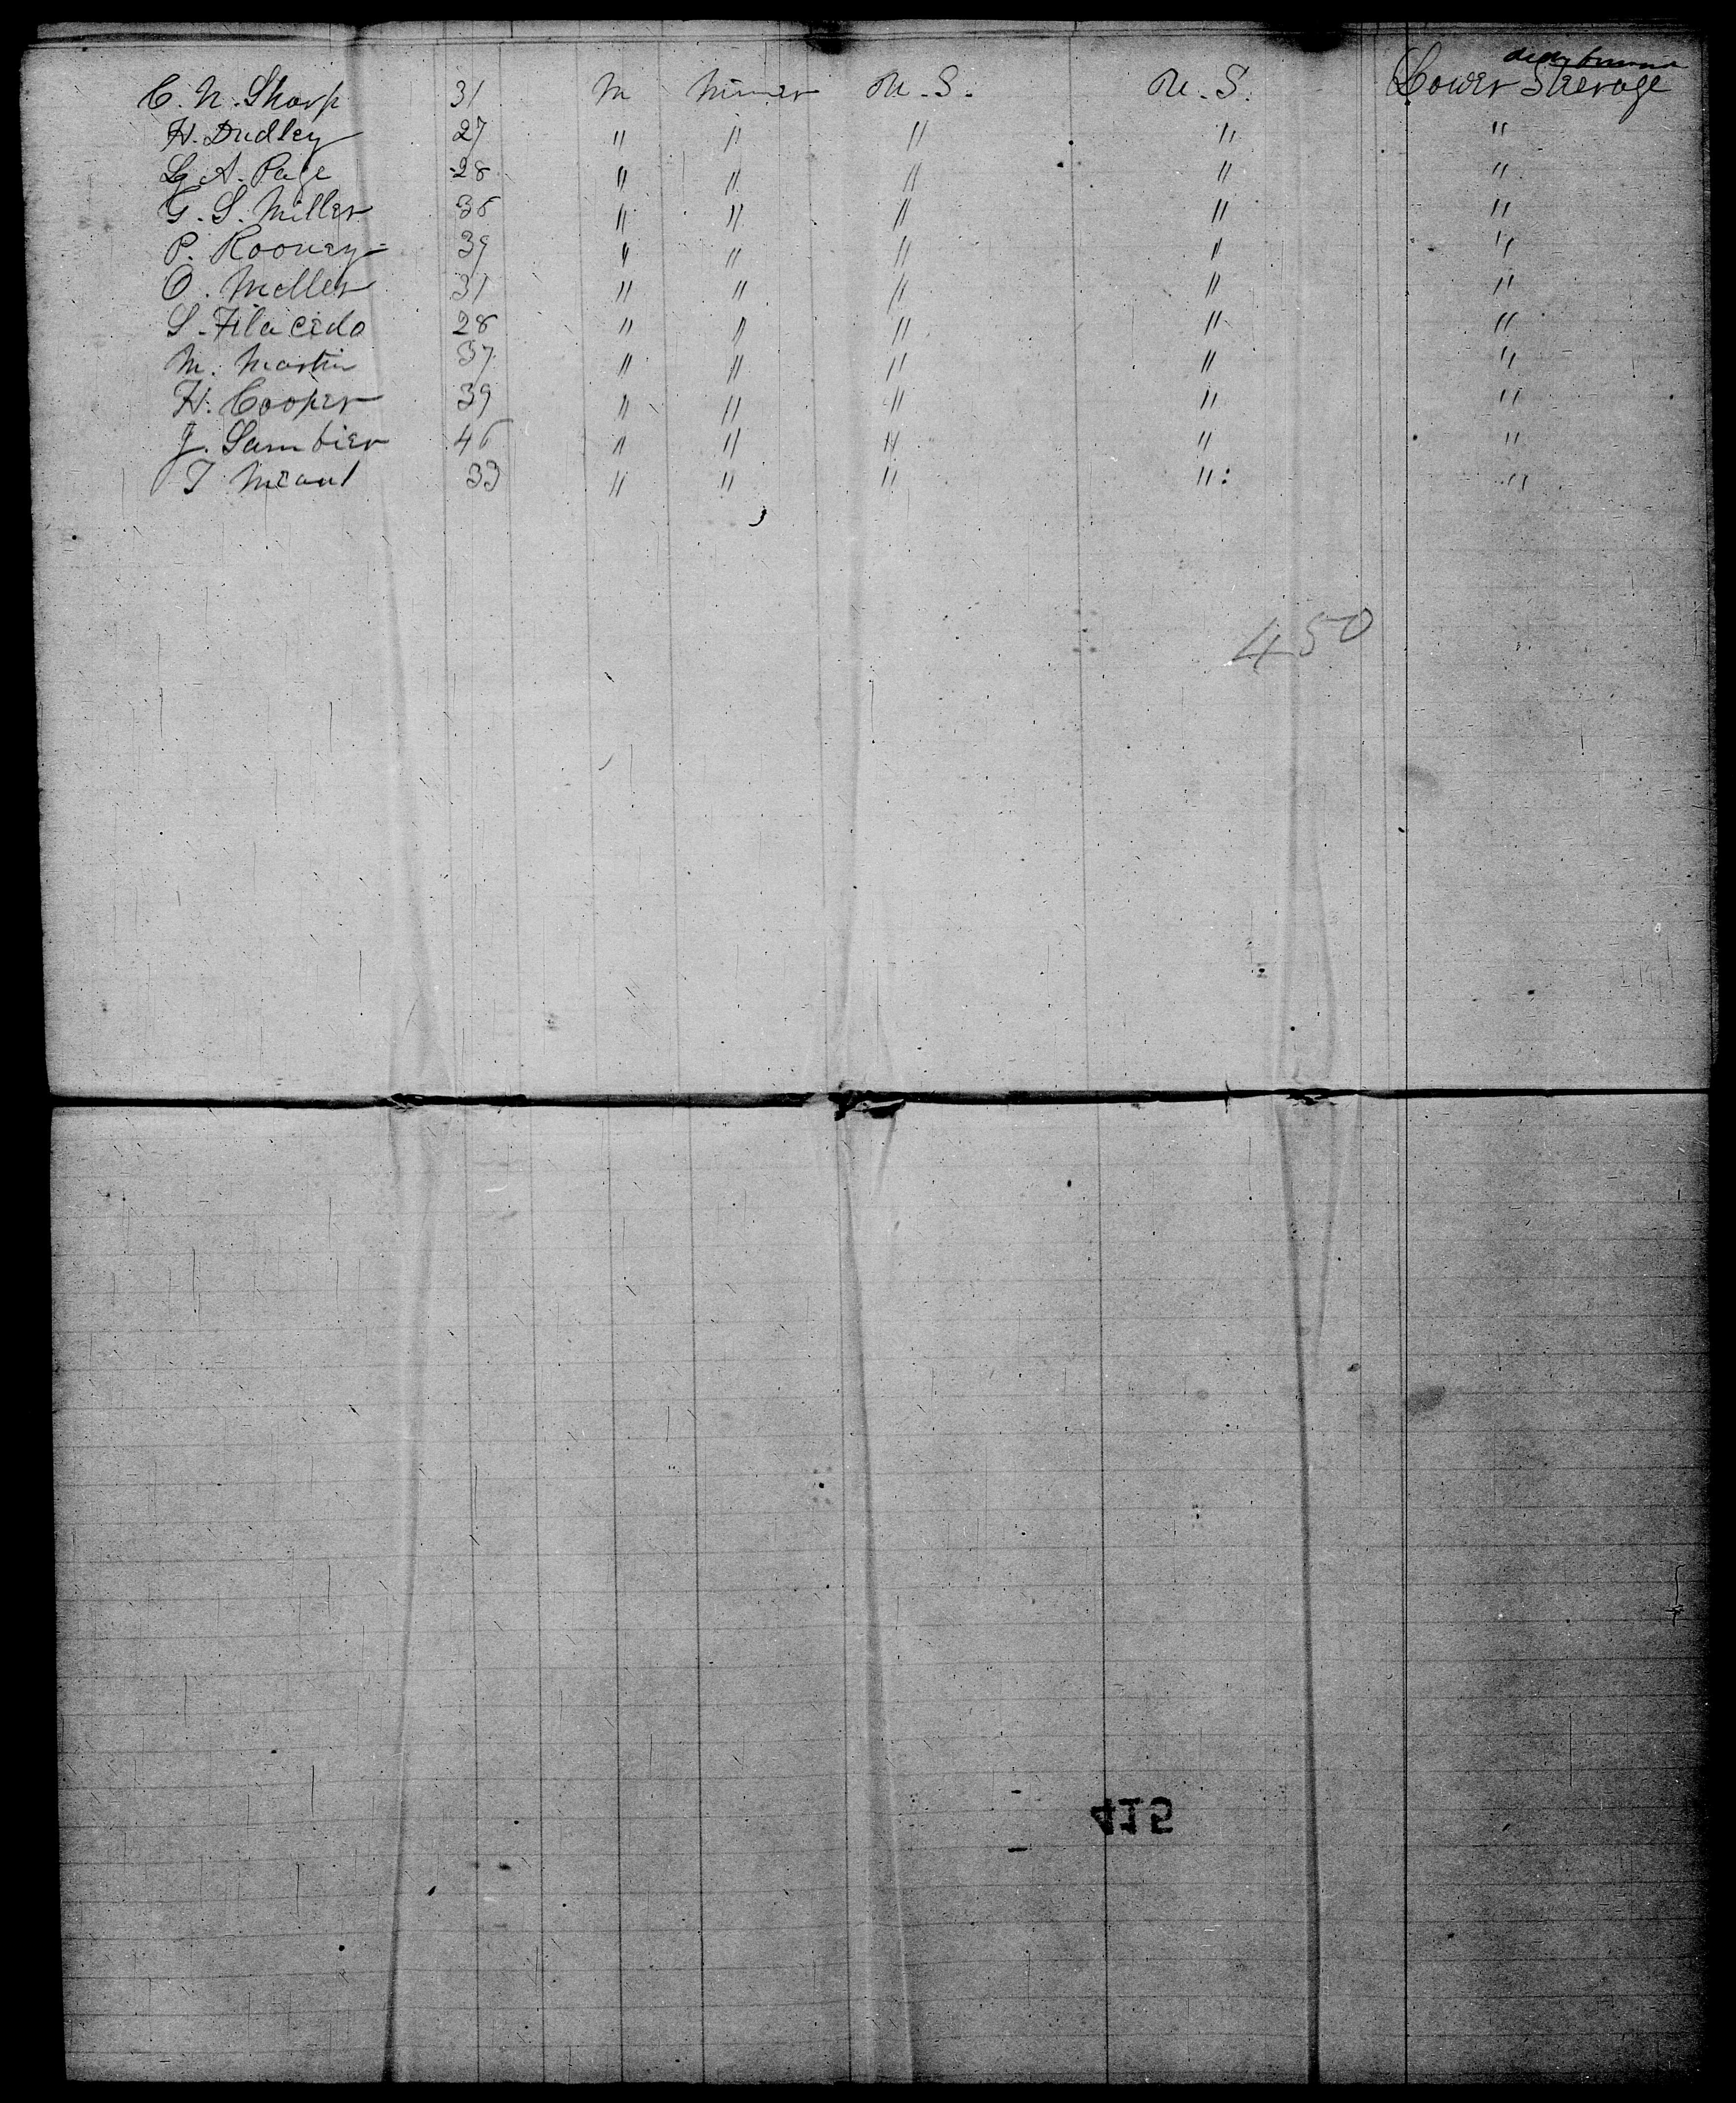 C. N. Sharp 31 M Miner U.S. U.S. Lower Steerage
H. Dudley 27 " " " " "
A. Page 28 " " " " "
G. S. Miller 36 " " " " "
P. Rooney 39 " " " " "
O. Meller 31 " " " " "
S. Filacedo 28 " " " " "
M. Martin 37 " " " " "
H. Cooper 39 " " " " "
J. Sambier 46 " " " " "
T 33 " " " " "
450
415